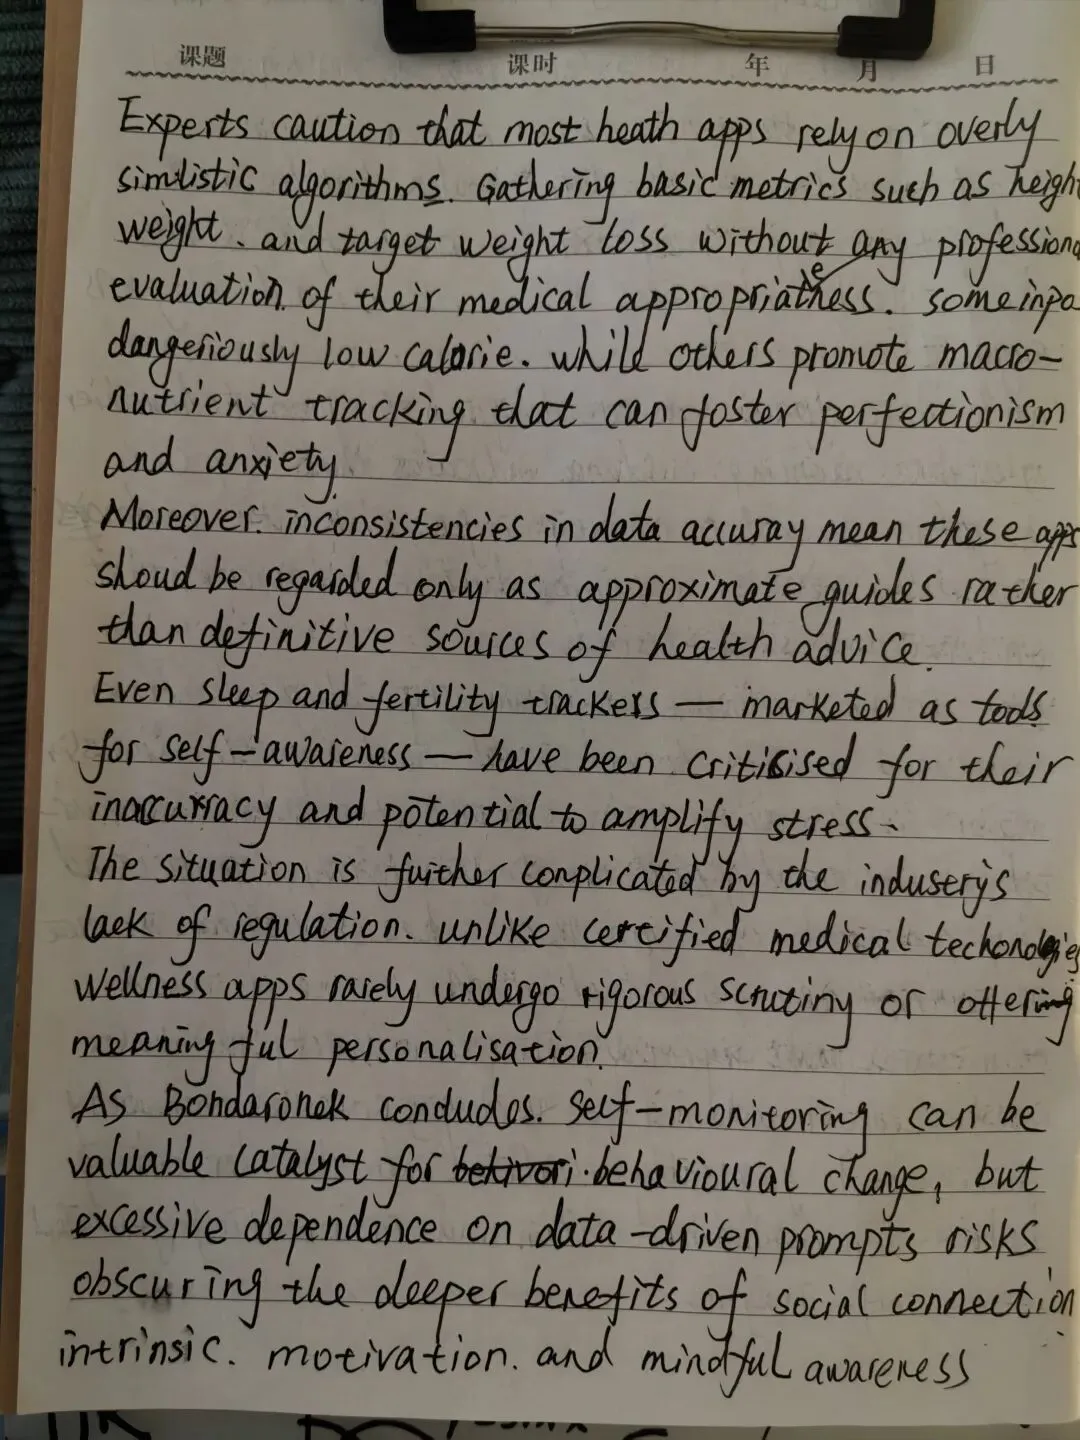 课题 课时 年 月 日
Experts caution that most heath apps rely on overly
simlistic algorithms. Gathering basic metrics such as height
weight. and target weight loss without any professiona
evaluation. of their medical appropriateness. some inpo
dangeriously low calorie. while others promote macro-
nutrient tracking that can foster perfectionism
and anxiety.
Moreover. inconsistencies in data accuray mean these apps
shoud be regarded only as approximate guides rather
than definitive sources of health advice.
Even sleep and fertility trackers — marketed as tools
for self-awareness — have been criticised for their
inaccurracy and potential to amplify stress.
The situation is further complicated by the indusery's
lack of regulation. unlike certified medical techonologies
wellness apps rarely undergo rigorous scrutiny or offering
meaningful personalisation.
As Bondaronek concludes. self-monitoring can be
valuable catalyst for behavioural change, but
excessive dependence on data-driven prompts risks
obscuring the deeper benefits of social connection
intrinsic. motivation. and mindful awareness